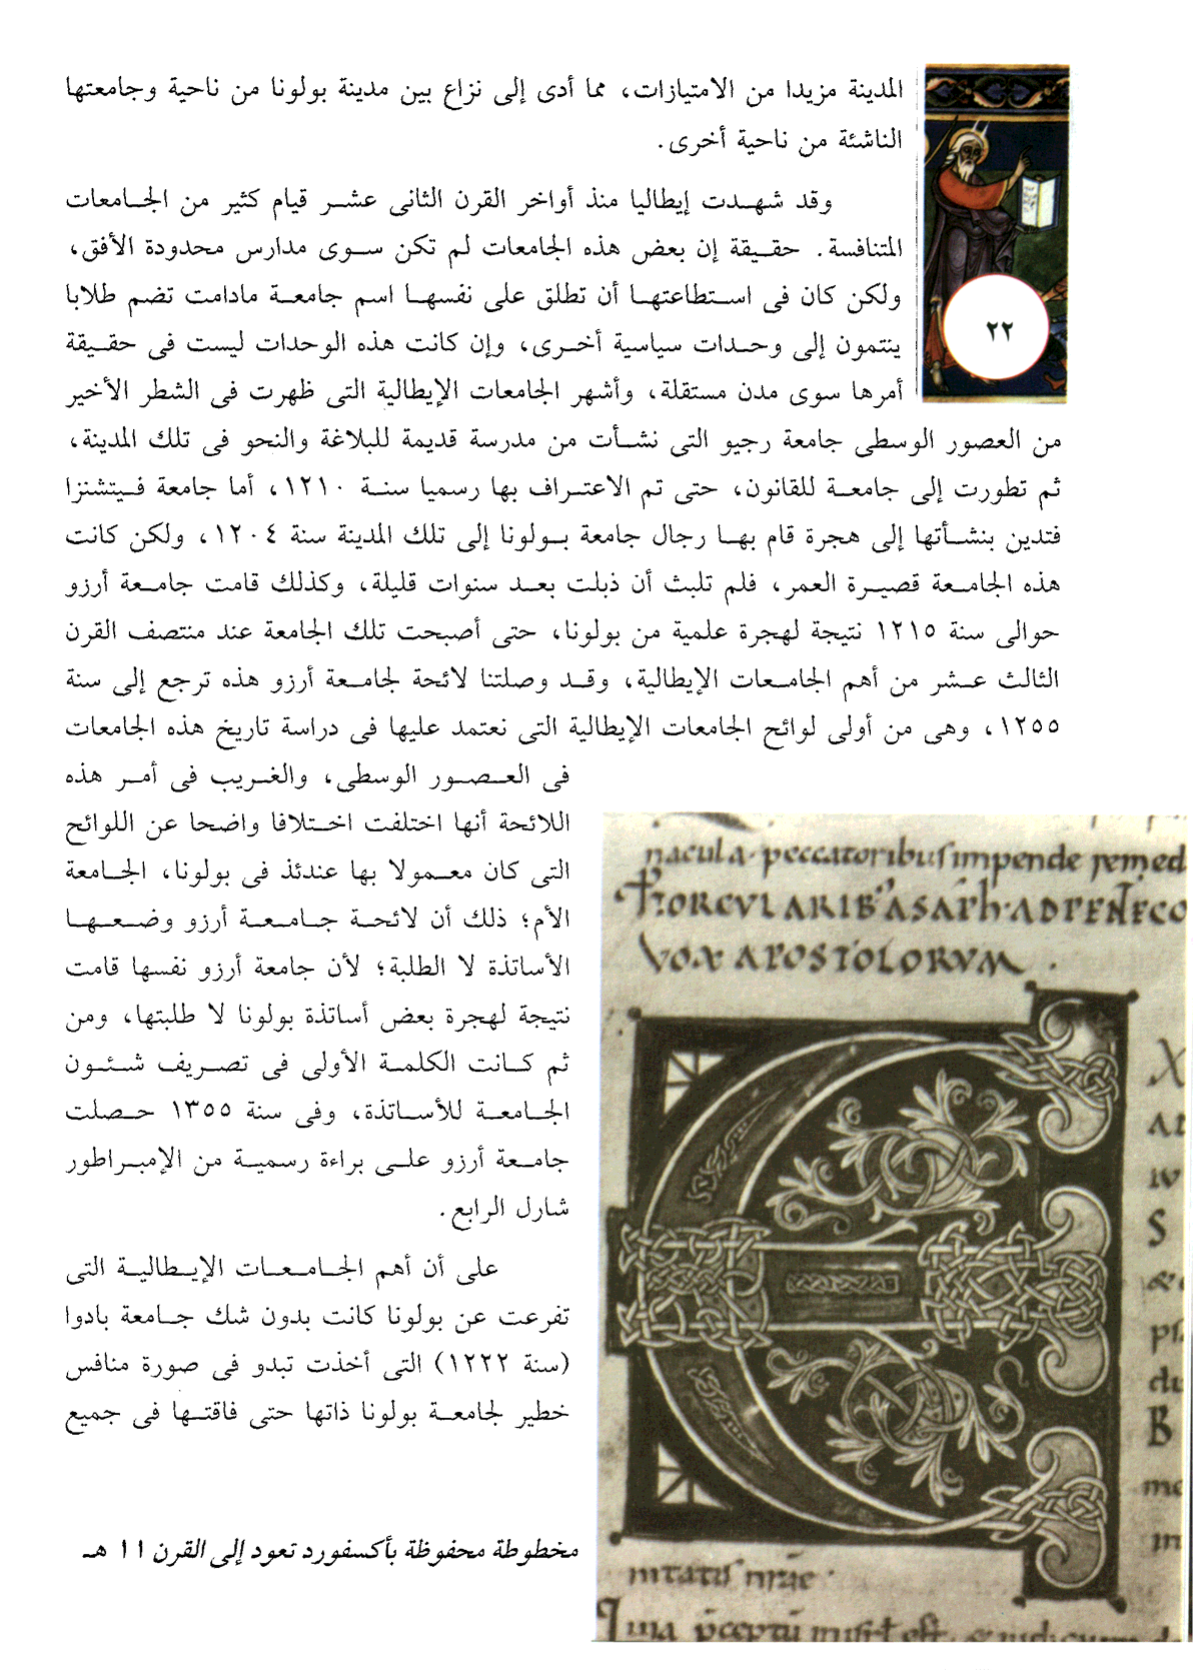 المدينة مزيدا من الامتيازات، مما أدى إلى نزاع بين مدينة بولونا من ناحية وجامعتها
الناشئة من ناحية أخرى.
وقد شهدت إيطاليا منذ أواخر القرن الثانى عشر قيام كثير من الجامعات
المتنافسة. حقيقة إن بعض هذه الجامعات لم تكن سوى مدارس محدودة الأفق،
ولكن كان فى استطاعتها أن تطلق على نفسها اسم جامعة مادامت تضم طلابا
٢٢
ينتمون إلى وحدات سياسية أخرى، وإن كانت هذه الوحدات ليست فى حقيقة
أمرها سوى مدن مستقلة، وأشهر الجامعات الإيطالية التى ظهرت فى الشطر الأخير
من العصور الوسطى جامعة رجيو التى نشأت من مدرسة قديمة للبلاغة والنحو فى تلك المدينة،
ثم تطورت إلى جامعة للقانون، حتى تم الاعتراف بها رسميا سنة ١٢١٠، أما جامعة فيتشنزا
فتدين بنشأتها إلى هجرة قام بها رجال جامعة بولونا إلى تلك المدينة سنة ١٢٠٤، ولكن كانت
هذه الجامعة قصيرة العمر، فلم تلبث أن ذبلت بعد سنوات قليلة، وكذلك قامت جامعة أرزو
حوالى سنة ١٢١٥ نتيجة لهجرة علمية من بولونا، حتى أصبحت تلك الجامعة عند منتصف القرن
الثالث عشر من أهم الجامعات الإيطالية، وقد وصلتنا لائحة لجامعة أرزو هذه ترجع إلى سنة
١٢٥٥، وهى من أولى لوائح الجامعات الإيطالية التى نعتمد عليها فى دراسة تاريخ هذه الجامعات
فى العصور الوسطى، والغريب فى أمر هذه
اللائحة أنها اختلفت اختلافا واضحا عن اللوائح
التى كان معمولا بها عندئذ فى بولونا، الجامعة
الأم؛ ذلك أن لائحة جامعة أرزو وضعها
الأساتذة لا الطلبة؛ لأن جامعة أرزو نفسها قامت
نتيجة لهجرة بعض أساتذة بولونا لا طلبتها، ومن
ثم كانت الكلمة الأولى فى تصريف شئون
الجامعة للأساتذة، وفى سنة ١٣٥٥ حصلت
جامعة أرزو على براءة رسمية من الإمبراطور
شارل الرابع.
على أن أهم الجامعات الإيطالية التى
تفرعت عن بولونا كانت بدون شك جامعة بادوا
(سنة ١٢٢٢) التى أخذت تبدو فى صورة منافس
خطير لجامعة بولونا ذاتها حتى فاقتها فى جميع
nacula peccatoribus impende remed
VOX APOSTOLORVM
مخطوطة محفوظة بأكسفورد تعود إلى القرن ١١ هـ